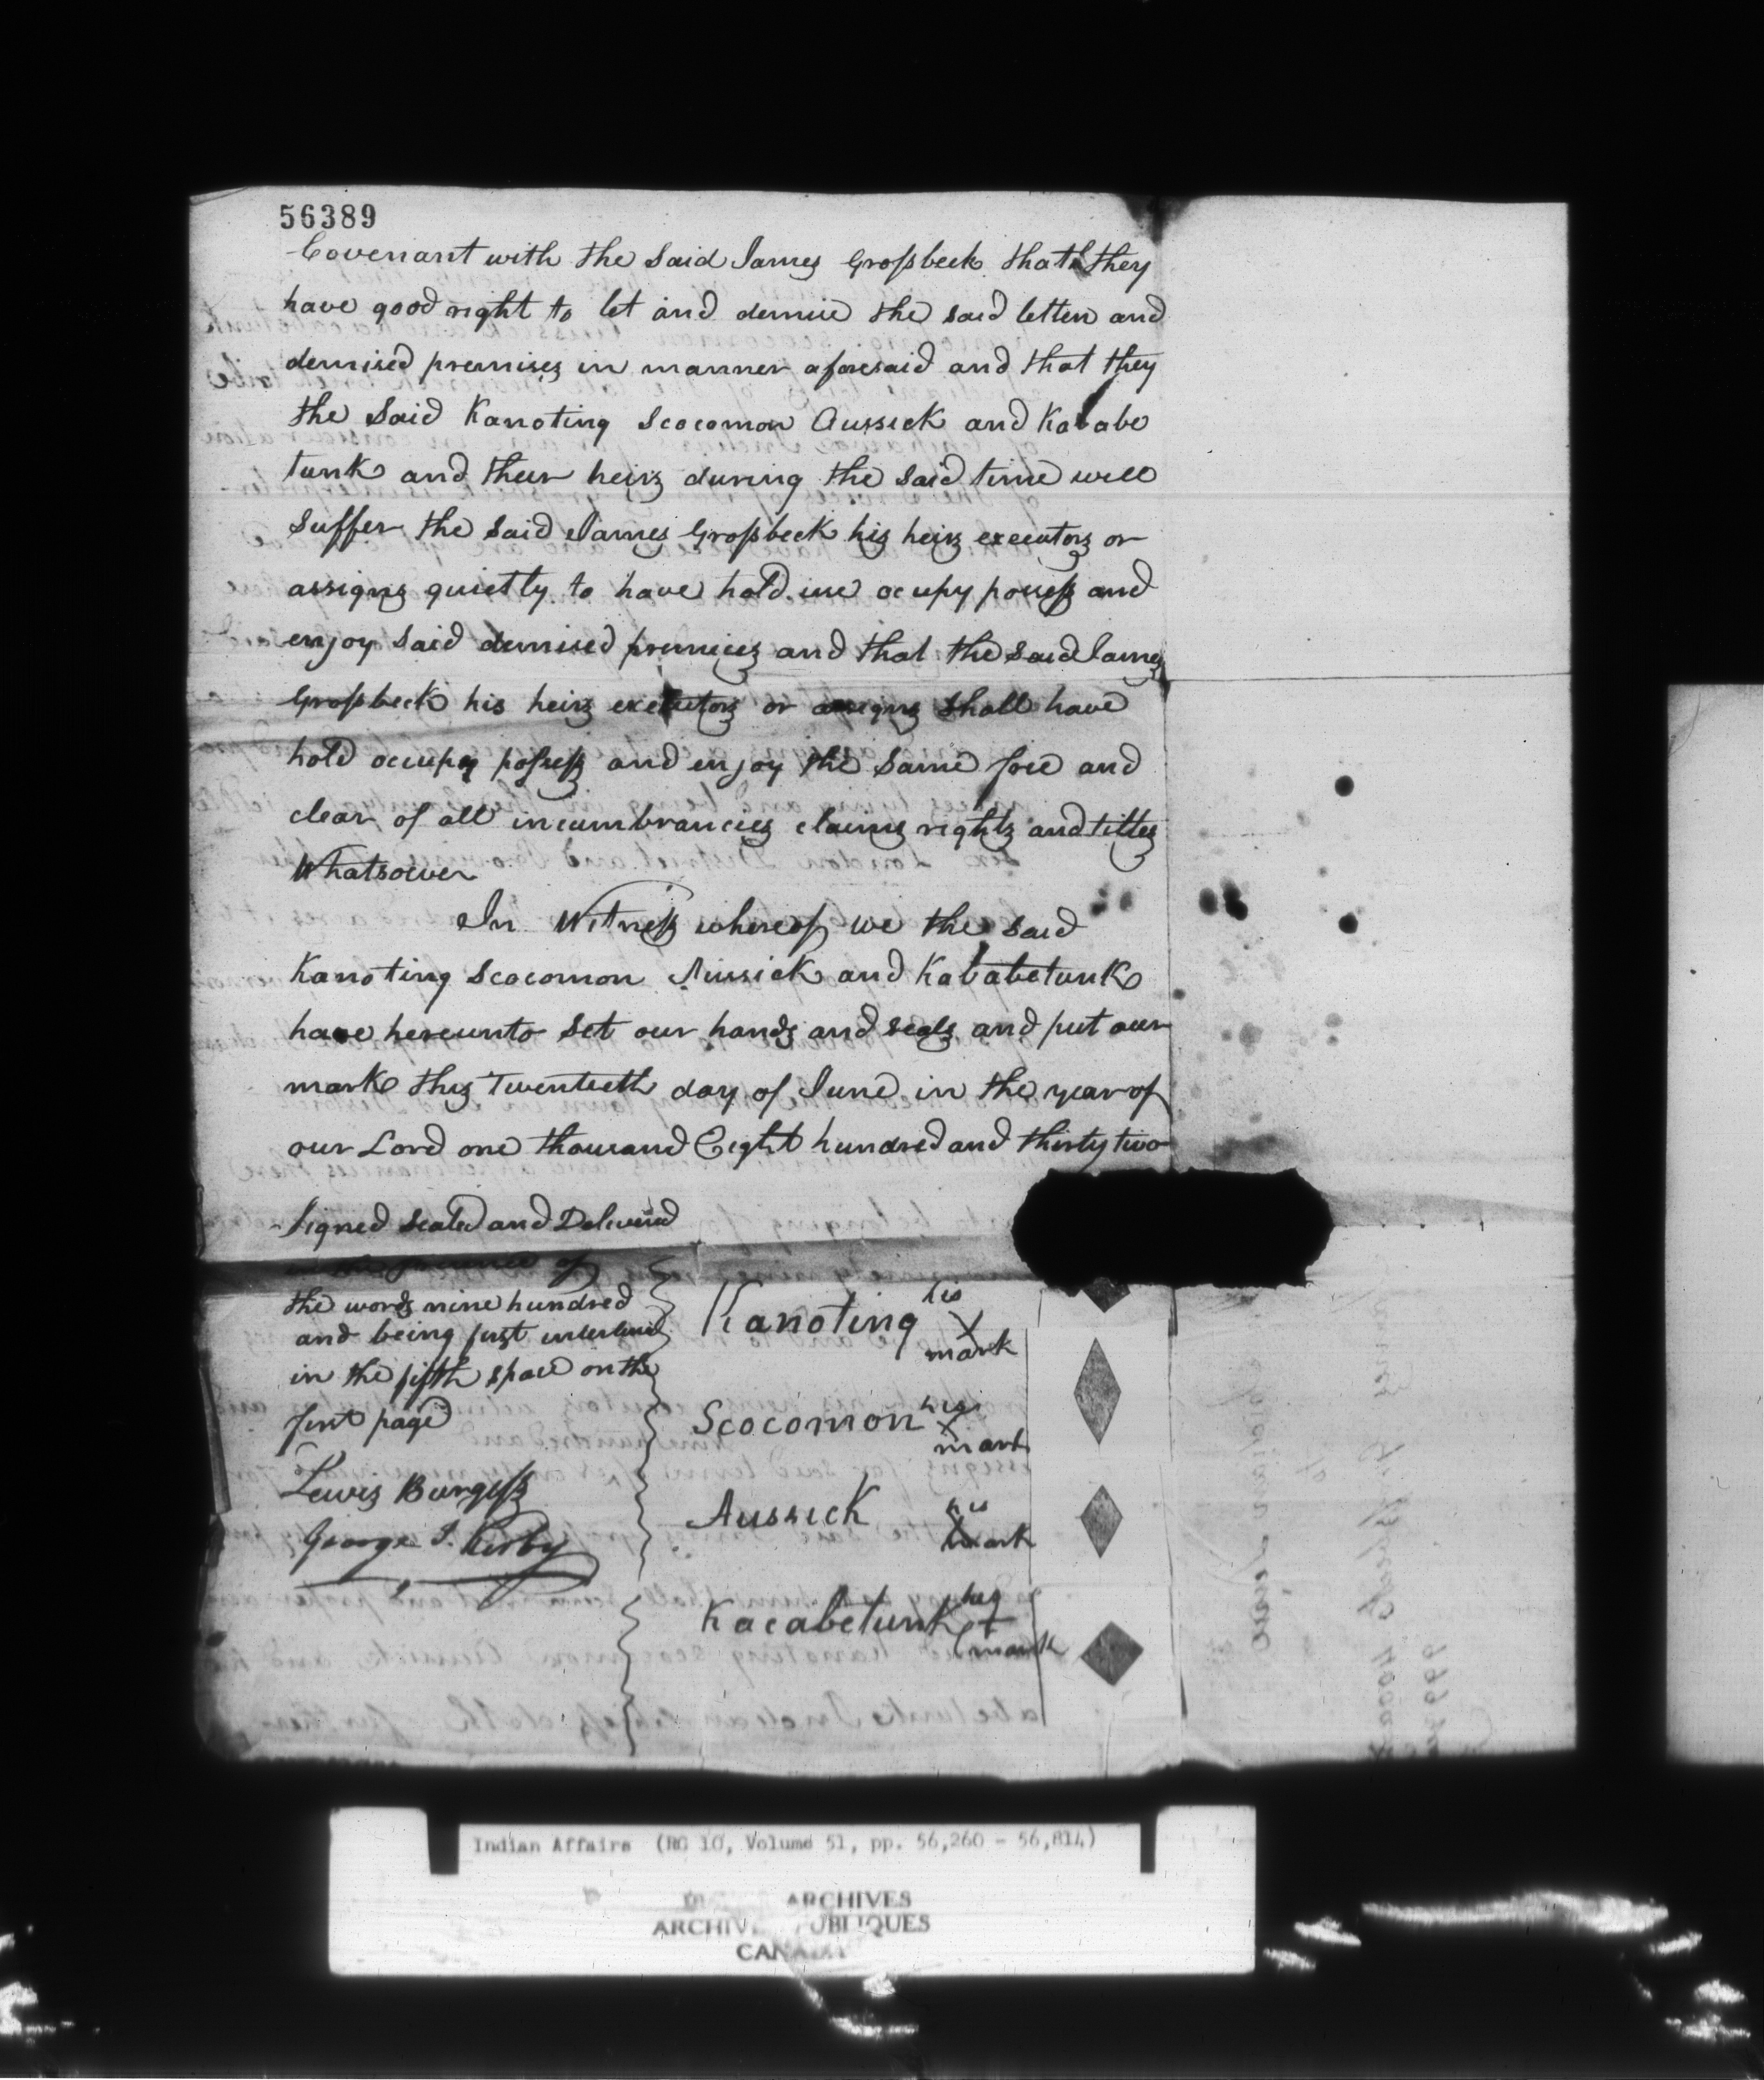 56389
Covenant with the Said James Grossbeck that they
have good right to let and demise the said letten and
demised premises in manner aforesaid and that they
the Said Kanoting Scocomon Aussick and Kacabe
tunk and their heirs during the Said time will
Suffer the Said James Grossbeck his heirs executors or
assigns quietly to have hold use ocupy possess and
enjoy Said demised premices and that the Said James
Grossbeck his heirs executors or assigns Shall have
hold occupy possess and enjoy the Same free and
clear of all incumbrancies claims rights and titles
Whatsoever
In Witness whereof we the said
Kanoting Scocomon Aussick and Kacabetunk
have hereunto Set our hands and seals and put our
mark this Twentieth day of June in the year of
our Lord one thousand Eight hundred and thirty two
Signed Sealed and Delivered
in the presence of
the words nine hundred
and being first interlined
in the fifth space on the
first page
Lewis Burgess
George J. Kirby
Kanoting his X mark
Scocomon his X mark
Aussick his X mark
Kacabetunk his + mark
Indian Affairs (RG 10, Volume 51, pp. 56,260 - 56,814)
ARCHIVES
PUBLIQUES
CANADA